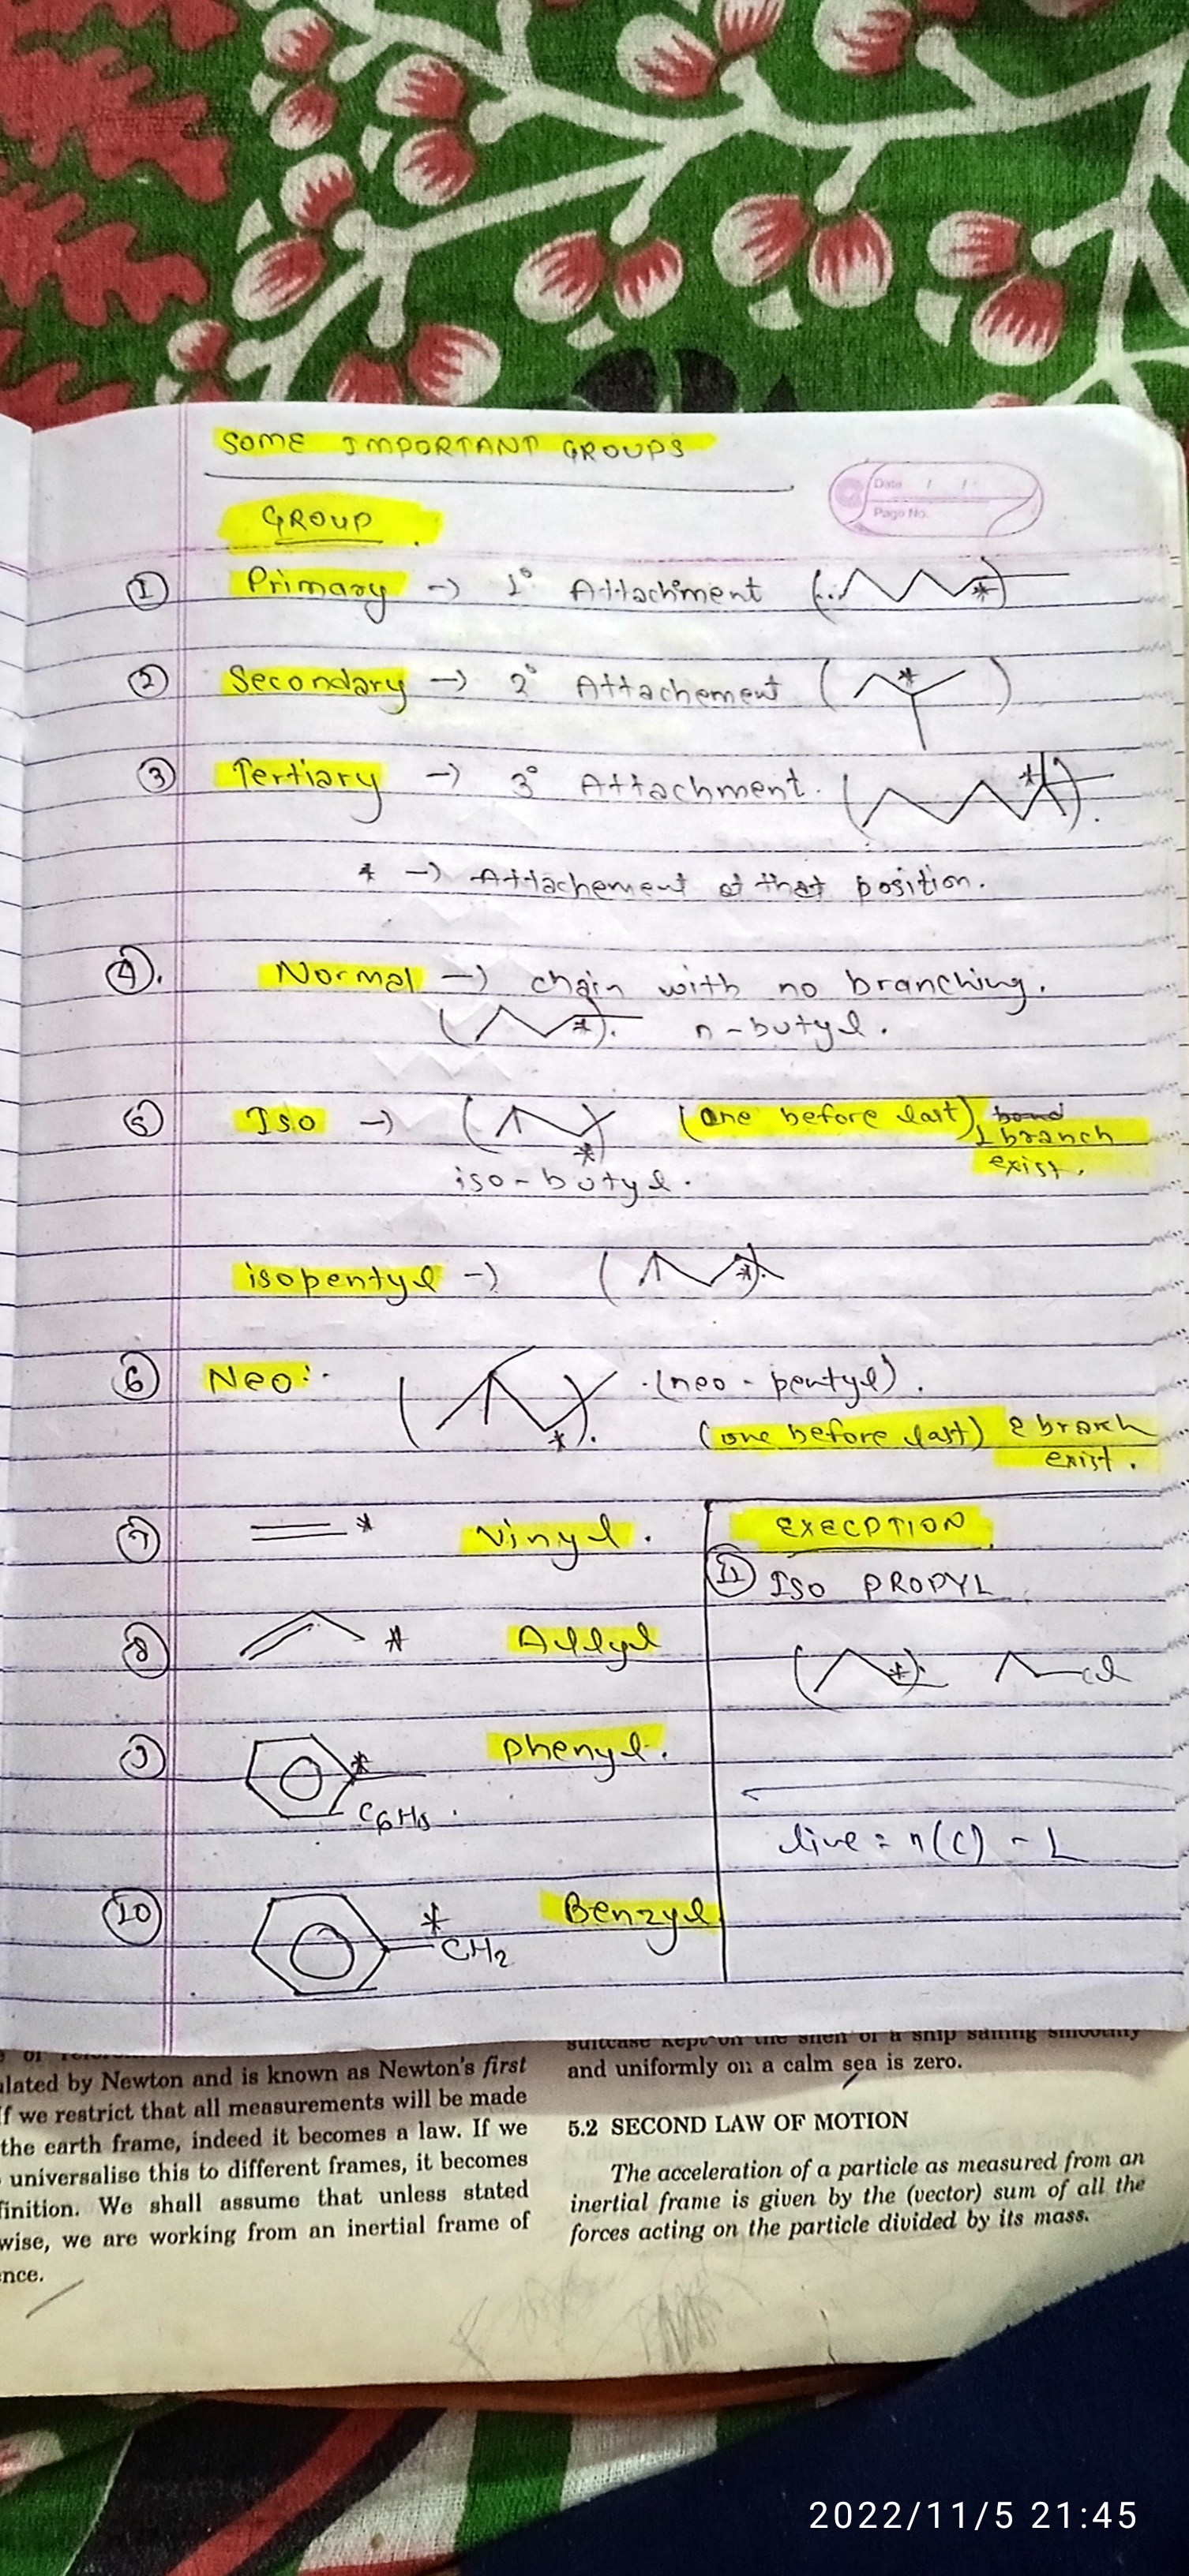 SOME IMPORTANT GROUPS
Date / /
Page No.
GROUP
① Primary → 1° Attachment
② Secondary → 2° Attachement
③ Tertiary → 3° Attachment.
* → Attachement at that position.
④. Normal → chain with no branching.
n-butyl.
⑤ Iso → (one before last) bond
1 branch
exist.
iso-butyl.
isopentyl →
⑥ Neo:- (neo-pentyl).
(one before last) 2 branch
exist.
⑦ * Vinyl.
⑧ * Allyl
⑨ * Phenyl.
C6H5.
⑩ * CH2 Benzyl
EXECPTION
⑪ ISO PROPYL
Cl
line = n(C) - 1
lated by Newton and is known as Newton's first
If we restrict that all measurements will be made
the earth frame, indeed it becomes a law. If we
universalise this to different frames, it becomes
finition. We shall assume that unless stated
wise, we are working from an inertial frame of
nce.
suitcase kept on the shelf of a ship sailing smoothly
and uniformly on a calm sea is zero.
5.2 SECOND LAW OF MOTION
The acceleration of a particle as measured from an
inertial frame is given by the (vector) sum of all the
forces acting on the particle divided by its mass.
2022/11/5 21:45